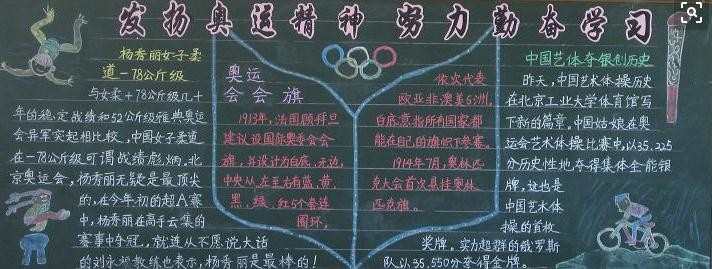 发扬奥运精神 努力勤奋学习
杨秀丽女子柔
道-78公斤级
与女柔+78公斤级几十
年的稳定战绩和52公斤级雅典奥运
会异军突起相比较,中国女子柔道
在-78公斤级可谓战绩彪炳。北
京奥运会,杨秀丽无疑是最顶尖
的,在今年初的超A赛
中,杨秀丽在高手云集的
赛事中夺冠,就连从不愿说大话
的刘永福教练也表示,杨秀丽是最棒的!
奥运
会会旗
1913年,法国顾拜旦
建议设国际奥委会会
旗,并设计为白底、无边,
中央从左至右有蓝、黄、
黑、绿、红5个套连
圆环,
依次代表
欧亚非澳美5洲,
白底意指所有国家都
能在自己的旗帜下参赛。
1914年7月,奥林匹
克大会首次悬挂奥林
匹克旗。
中国艺体夺银创历史
昨天,中国艺术体操历史
在北京工业大学体育馆写
下新的篇章。中国姑娘在奥
运会艺术体操比赛中,以35.225
分历史性地夺得集体全能银
牌,这也是
中国艺术体
操的首枚
奖牌。实力超群的俄罗斯
队以35.550分夺得金牌。